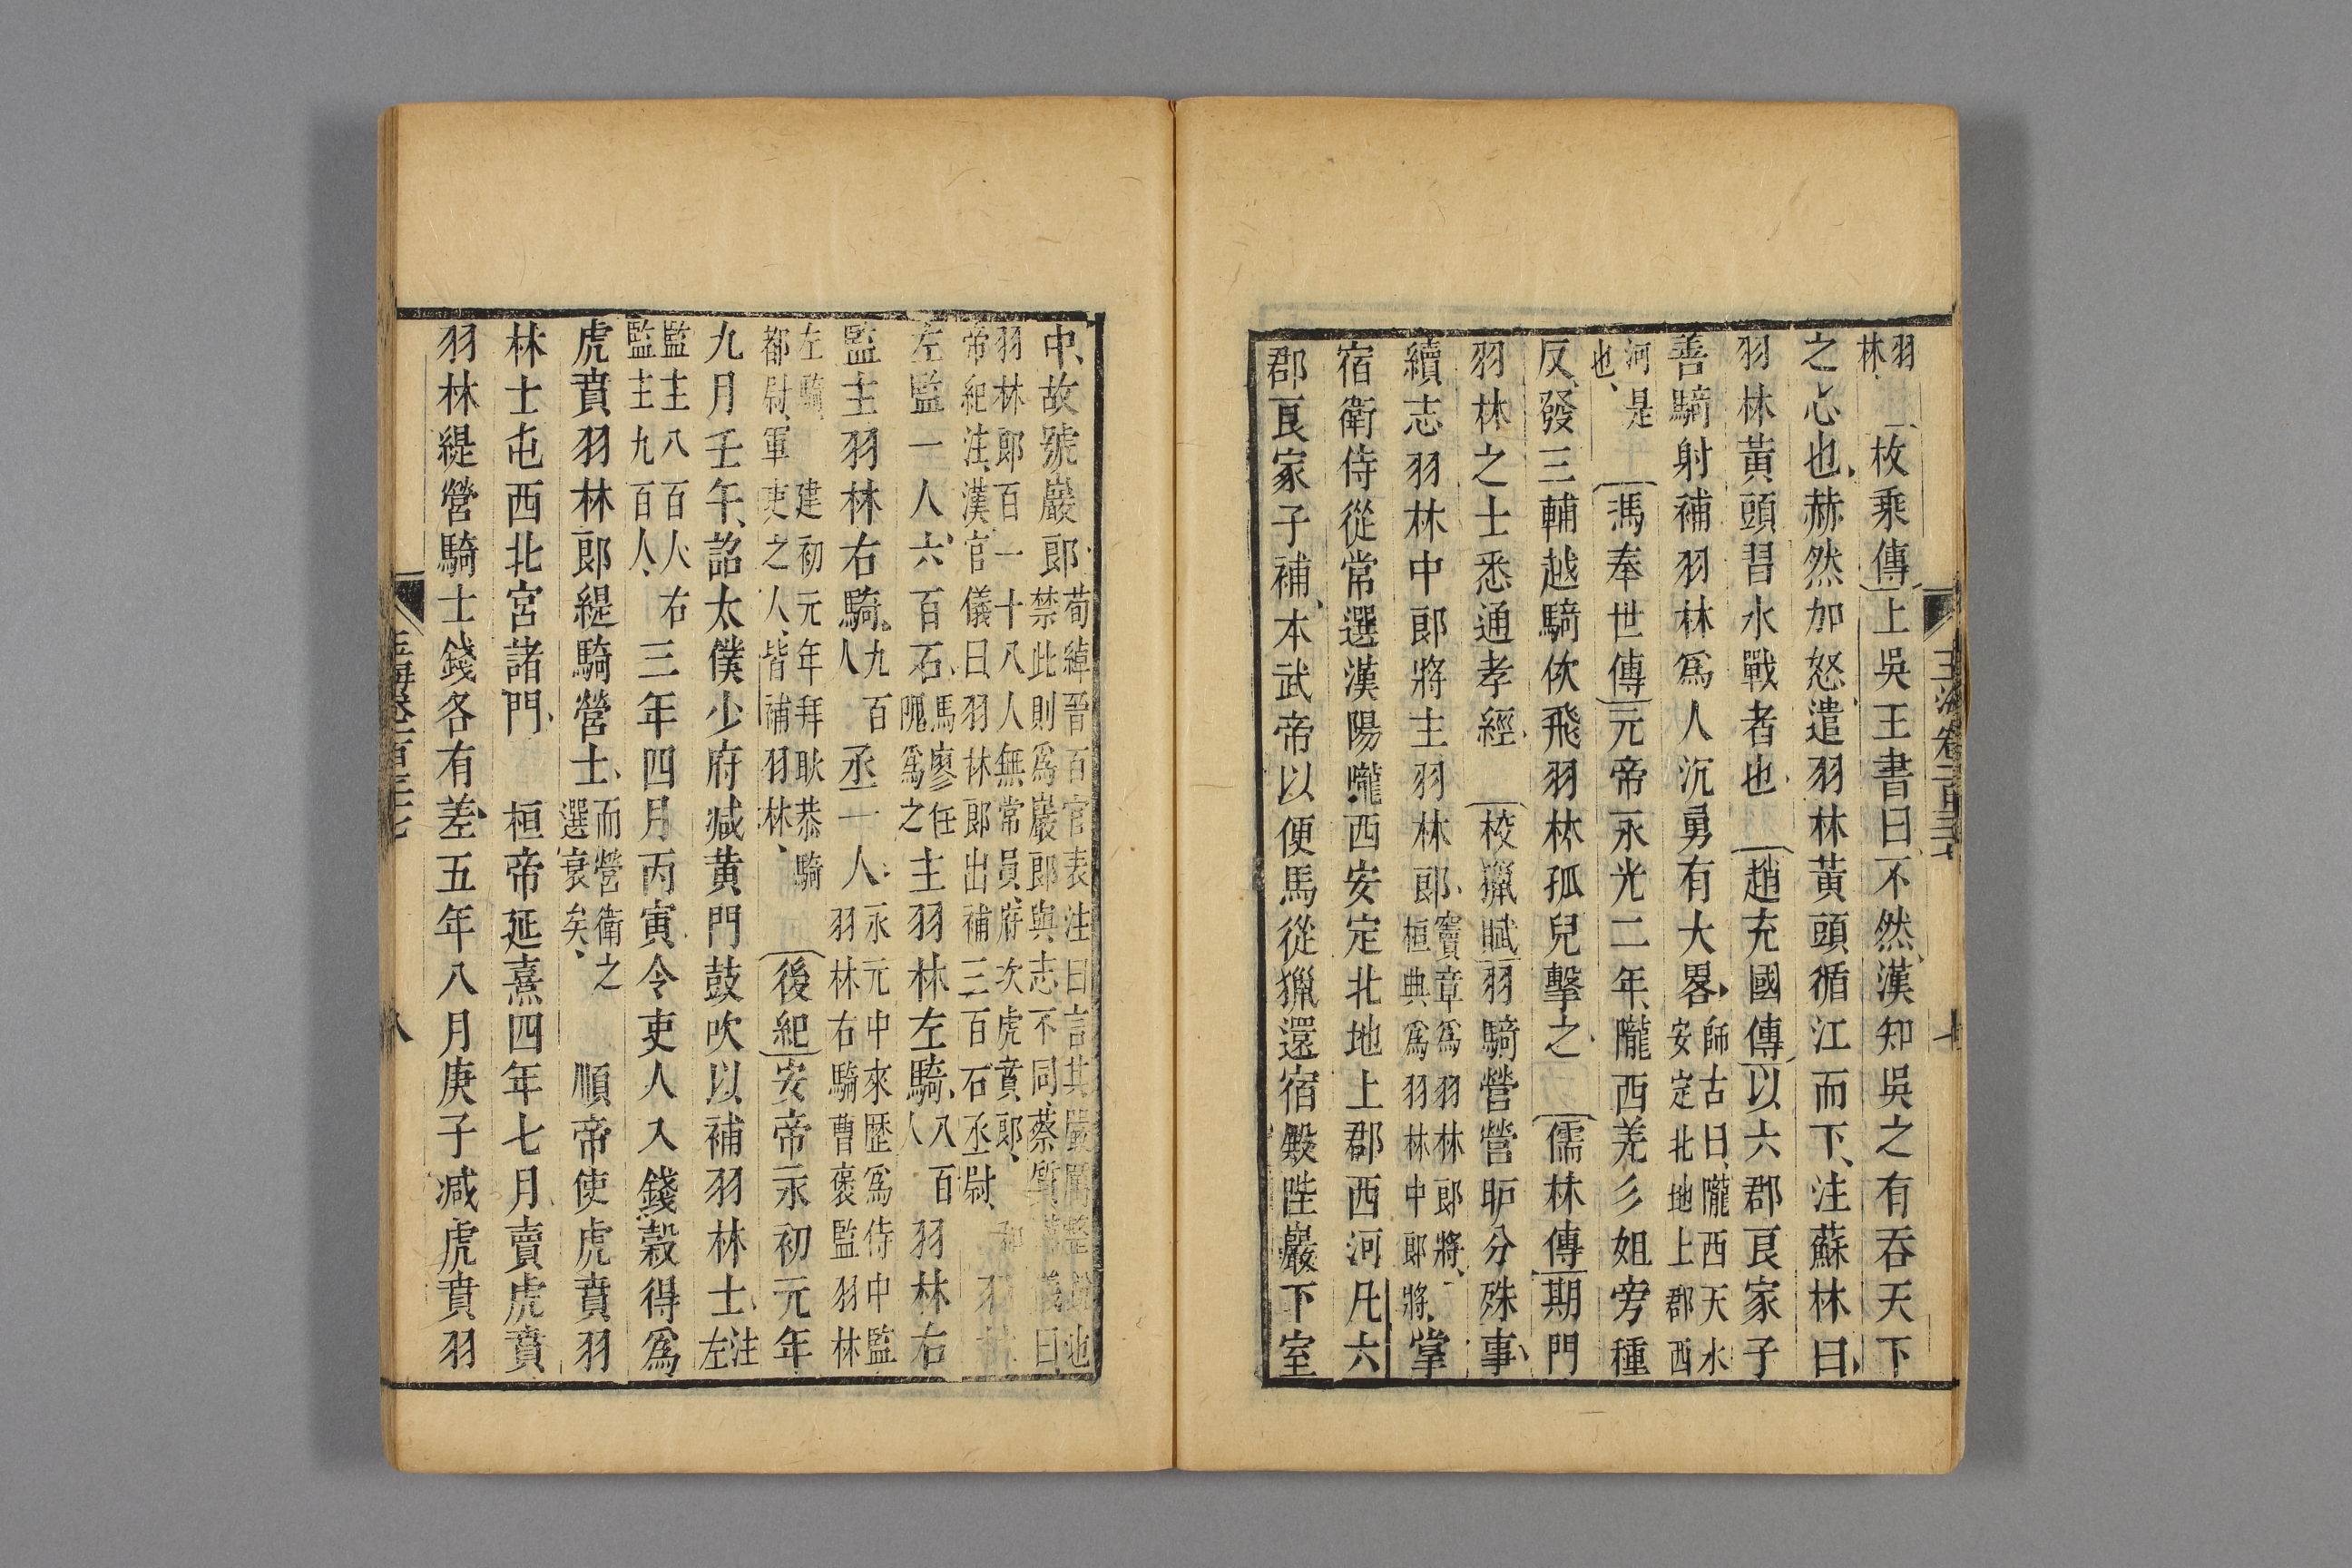 玉海卷一百三十七 七
羽林 枚乘傳上吳王書曰不然漢知吳之有吞天下
之心也赫然加怒遣羽林黃頭循江而下注蘇林曰
羽林黃頭習水戰者也 趙充國傳以六郡良家子
善騎射補羽林爲人沉勇有大畧師古曰隴西天水安定北地上郡西
河是也 馮奉世傳元帝永光二年隴西羌彡姐旁種
反發三輔越騎佽飛羽林孤兒擊之 儒林傳期門
羽林之士悉通孝經 校獵賦羽騎營營昈分殊事
續志羽林中郎將主羽林郎竇章爲羽林郎將桓典爲羽林中郎將掌
宿衛侍從常選漢陽隴西安定北地上郡西河凡六
郡良家子補本武帝以便馬從獵還宿殿陛巖下室
中故號巖郎荀綽晉百官表注曰言其嚴厲整銳也禁此則爲巖郎與志不同蔡質漢儀曰
羽林郎百一十八人無常員府次虎賁郎帝紀注漢官儀曰羽林郎出補三百石丞尉 羽林
左監一人六百石馬廖任隗爲之主羽林左騎八百人 羽林右
監主羽林右騎九百人 丞一人永元中來歷爲侍中監羽林右騎曹褒監羽林
左騎 建初元年拜耿恭騎都尉軍吏之人皆補羽林 後紀安帝永初元年
九月壬午詔太僕少府減黄門鼓吹以補羽林士注左
監主八百人右監主九百人 三年四月丙寅令吏人入錢穀得爲
虎賁羽林郎緹騎營士而營衛之選衰矣 順帝使虎賁羽
林士屯西北宮諸門 桓帝延熹四年七月賣虎賁
羽林緹營騎士錢各有差五年八月庚子減虎賁羽
玉海卷一百三十七 八